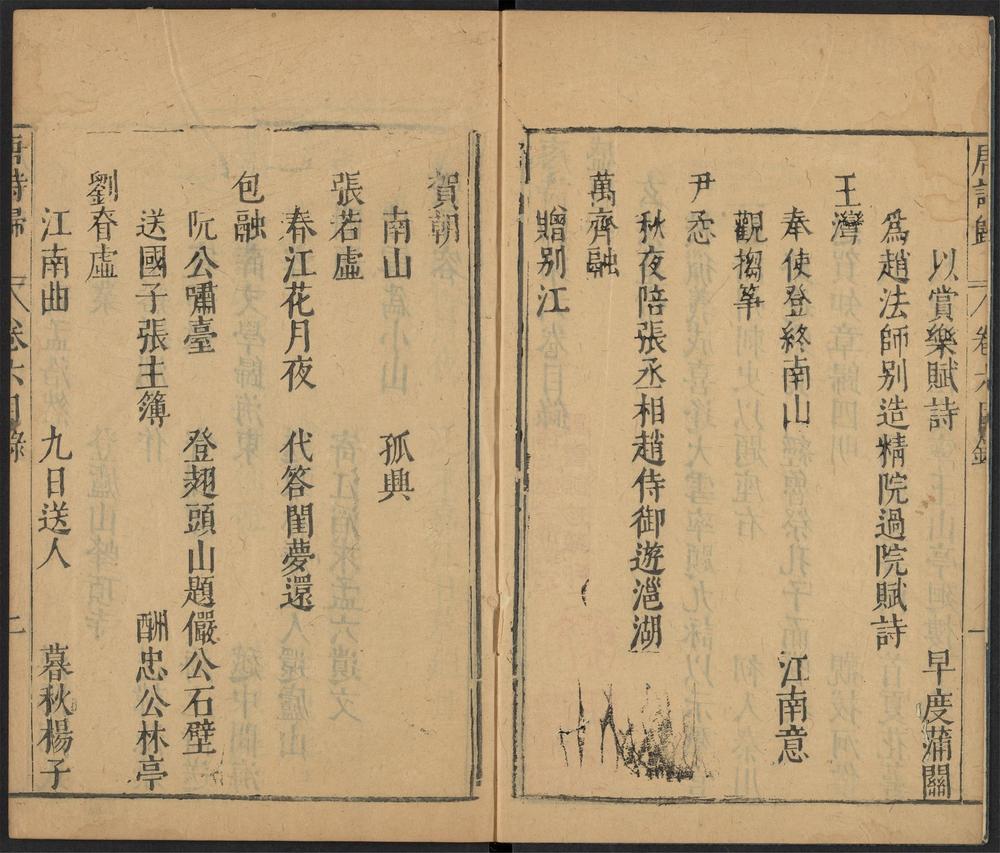 唐詩歸 卷六目錄 一
以賞樂賦詩 早度蒲關
爲趙法師別造精院過院賦詩
王灣
奉使登終南山 江南意
觀搊箏
尹懋
秋夜陪張丞相趙侍御遊灉湖
萬齊融
贈別江
賀朝
南山 孤興
張若虛
春江花月夜 代答閨夢還
包融
阮公嘯臺 登翅頭山題儼公石壁
送國子張主簿 酬忠公林亭
劉眘虛
江南曲 九日送人 暮秋楊子
唐詩歸 卷六目錄 二